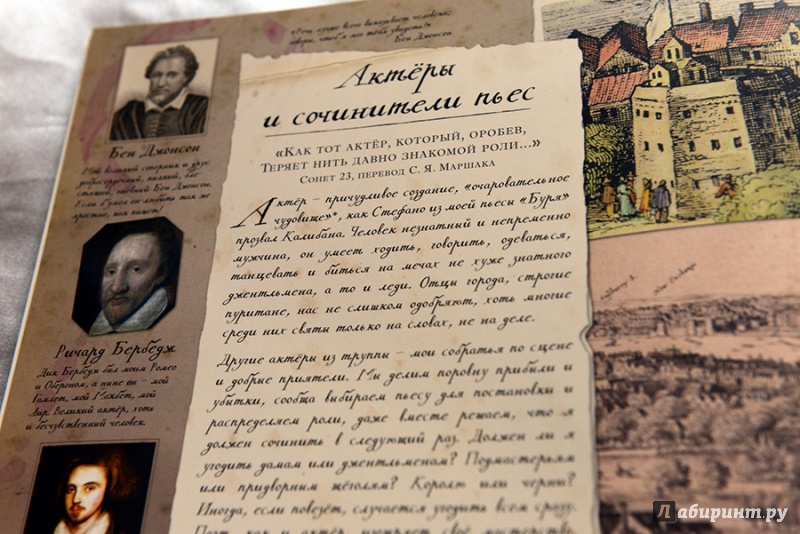 Бен Джонсон
Актёры
и сочинители пьес
«Как тот актёр, который, оробев,
Теряет нить давно знакомой роли...»
Сонет 23, перевод С. Я. Маршака
Актёр – причудливое создание, «очаровательное
чудовище»*, как Стефано из моей пьесы «Буря»
прозвал Калибана. Человек незнатный и непременно
мужчина, он умеет ходить, говорить, одеваться,
танцевать и биться на мечах не хуже знатного
джентльмена, а то и леди. Отцы города, строгие
пуритане, нас не слишком одобряют, хоть многие
среди них святы только на словах, не на деле.
Другие актёры из труппы – мои собратья по сцене
и добрые приятели. Мы делим поровну прибыли и
убытки, сообща выбираем пьесу для постановки и
распределяем роли, даже вместе решаем, что я
должен сочинить в следующий раз. Должен ли я
угодить дамам или джентльменам? Подмастерьям
или придворным щёголям? Королю или черни?
Иногда, если повезёт, случается угодить всем сразу.
Бен Джонсон
Мой великий соперник и друг,
Если б уже он любить так же
яростно, как пишет!
Ричард Бербедж
Дик Бербедж был моим Ромео
и Обероном, а ныне он – мой
Гамлет, мой Макбет, мой
Лир. Великий актёр, хоть
и бесчувственный человек.
Лабиринт.ру